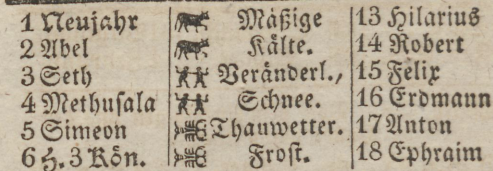 1 Neujahr Mäßige 13 Hilarius
2 Abel Kälte. 14 Robert
3 Seth Veränderl., 15 Felix
4 Methusala Schnee. 16 Erdmann
5 Simeon Thauwetter. 17 Anton
6 H. 3 Kön. Frost. 18 Ephraim